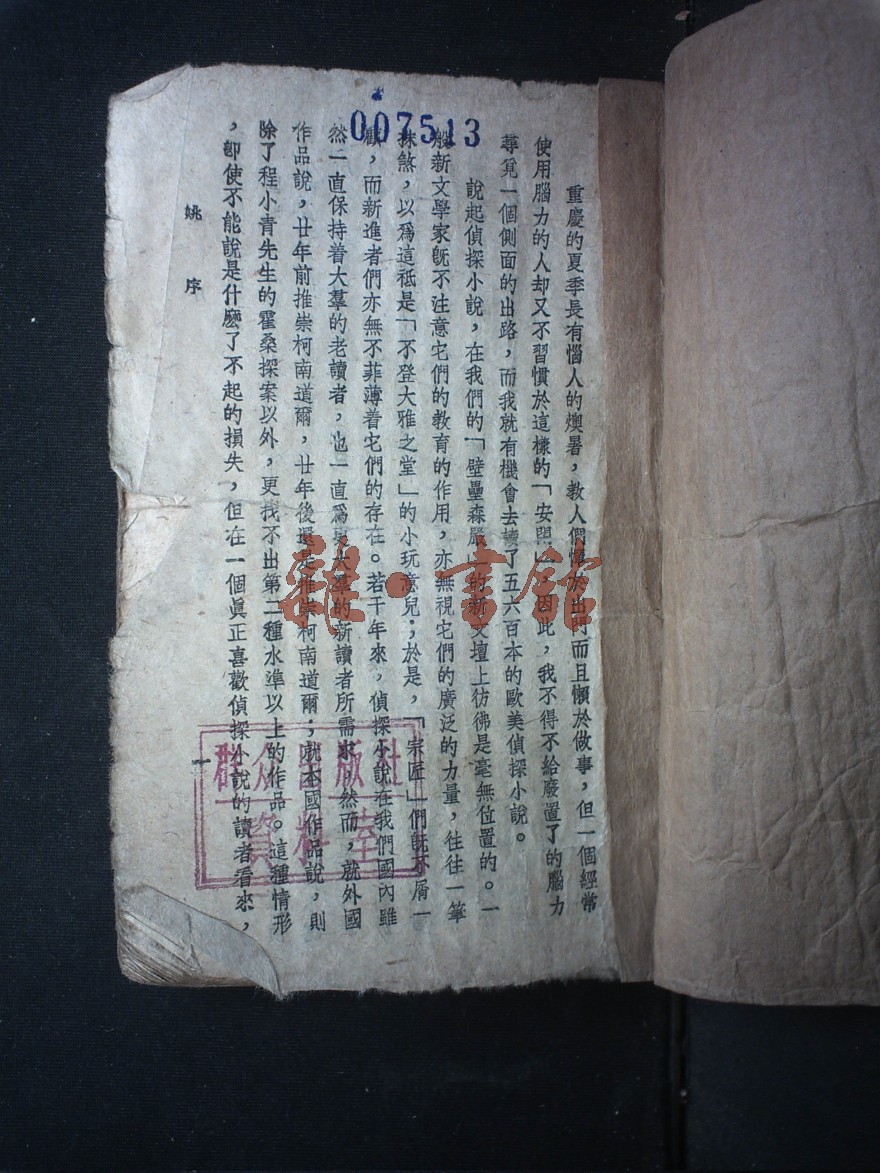 007513
重慶的夏季長有惱人的燠暑，教人們憚於出門而且懶於做事，但一個經常
使用腦力的人却又不習慣於這樣的「安閒」。因此，我不得不給廢置了的腦力
尋覓一個側面的出路，而我就有機會去讀了五六百本的歐美偵探小說。
說起偵探小說，在我們的「壁壘森嚴」的新文壇上彷彿是毫無位置的。一
般新文學家既不注意它們的教育的作用，亦無視它們的廣泛的力量，往往一筆
抹煞，以爲這祇是「不登大雅之堂」的小玩意兒；於是，「宗匠」們既不屑一
顧，而新進者們亦無不菲薄着它們的存在。若干年來，偵探小說在我們國內雖
然一直保持着大羣的老讀者，也一直爲更大羣的新讀者所需求，然而，就外國
作品說，廿年前推崇柯南道爾，廿年後還是推崇柯南道爾；就本國作品說，則
除了程小青先生的霍桑探案以外，更找不出第二種水準以上的作品。這種情形
，卽使不能說是什麼了不起的損失，但在一個眞正喜歡偵探小說的讀者看來，
姚序
一
雜·書館
群众出版社
資料室